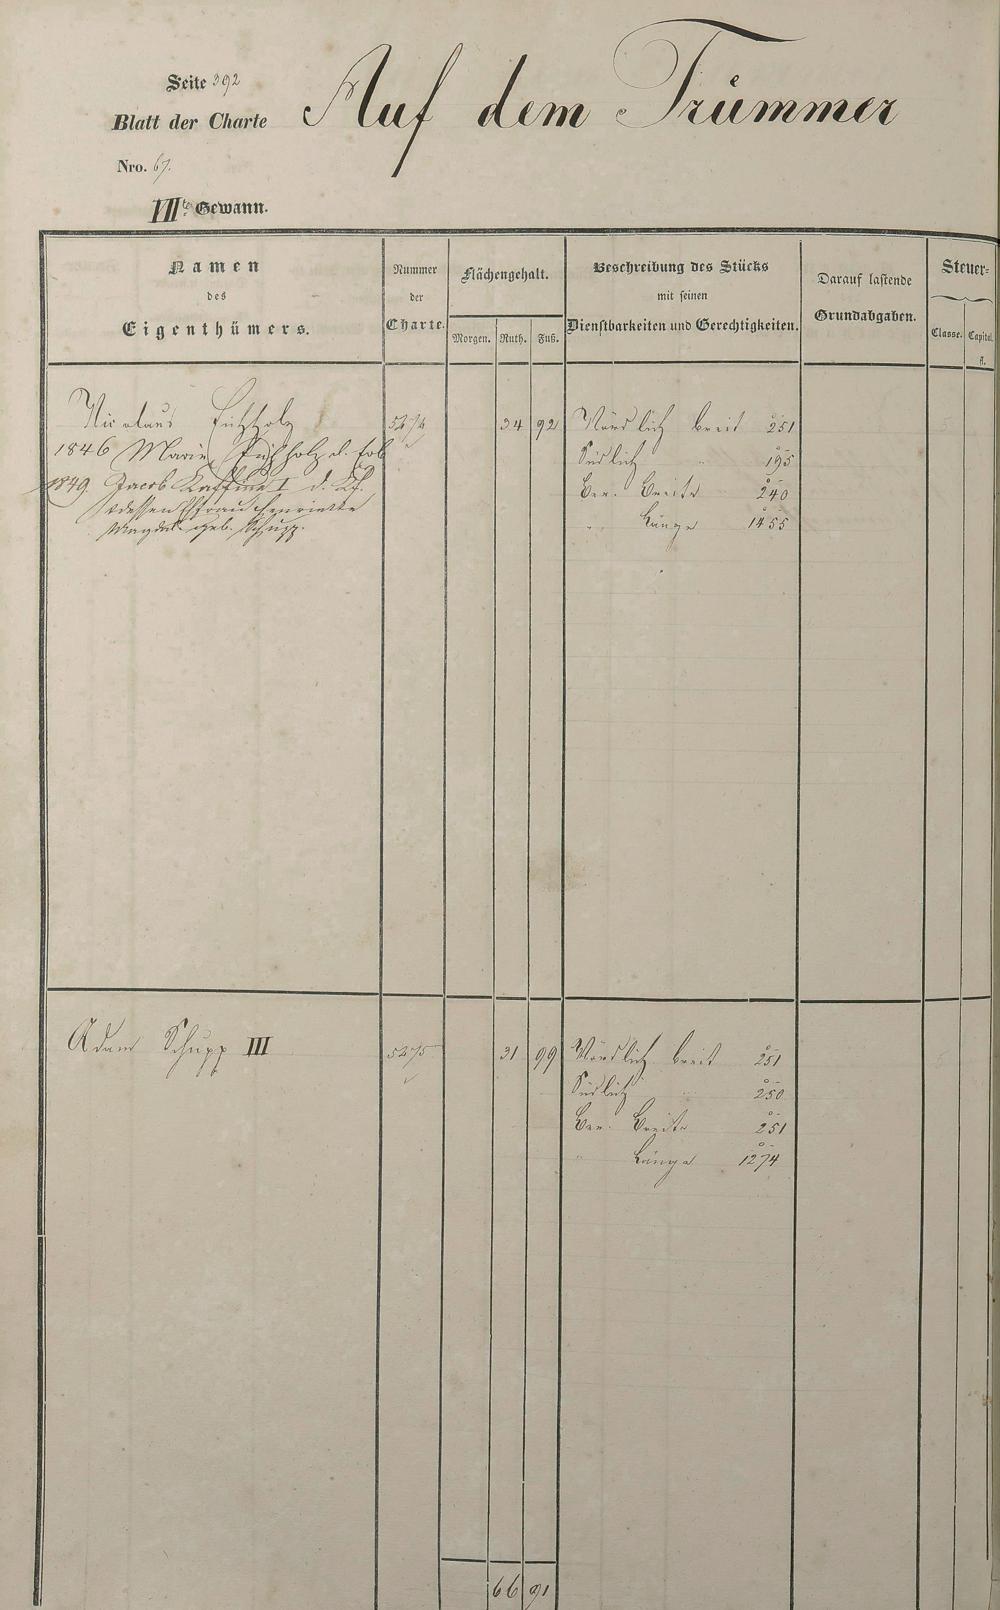 Seite 392
Auf dem Trümmer
Blatt der Charte
Nro. 67.
VIIte Gewann.
Namen des Eigenthümers.
Nummer der Charte.
Flächengehalt.
Morgen. Ruth. Fuß.
Beschreibung des Stücks mit seinen Dienstbarkeiten und Gerechtigkeiten.
Darauf lastende Grundabgaben.
Steuer-
Classe. Capital. fl.
Nicolaus 5274 34 92 Nördlich breit 251
1846 Marie d. Erb
Südlich " 195
1849 Jacob I d. Kf.
Ber. Breite 240
dessen Ehfrau Henriette
" Länge 1455
Magdl. geb. Schupp.
Adam Schupp III 5275 31 99 Nördlich breit 251
Südlich " 250
Ber. Breite 251
" Länge 1274
66 91